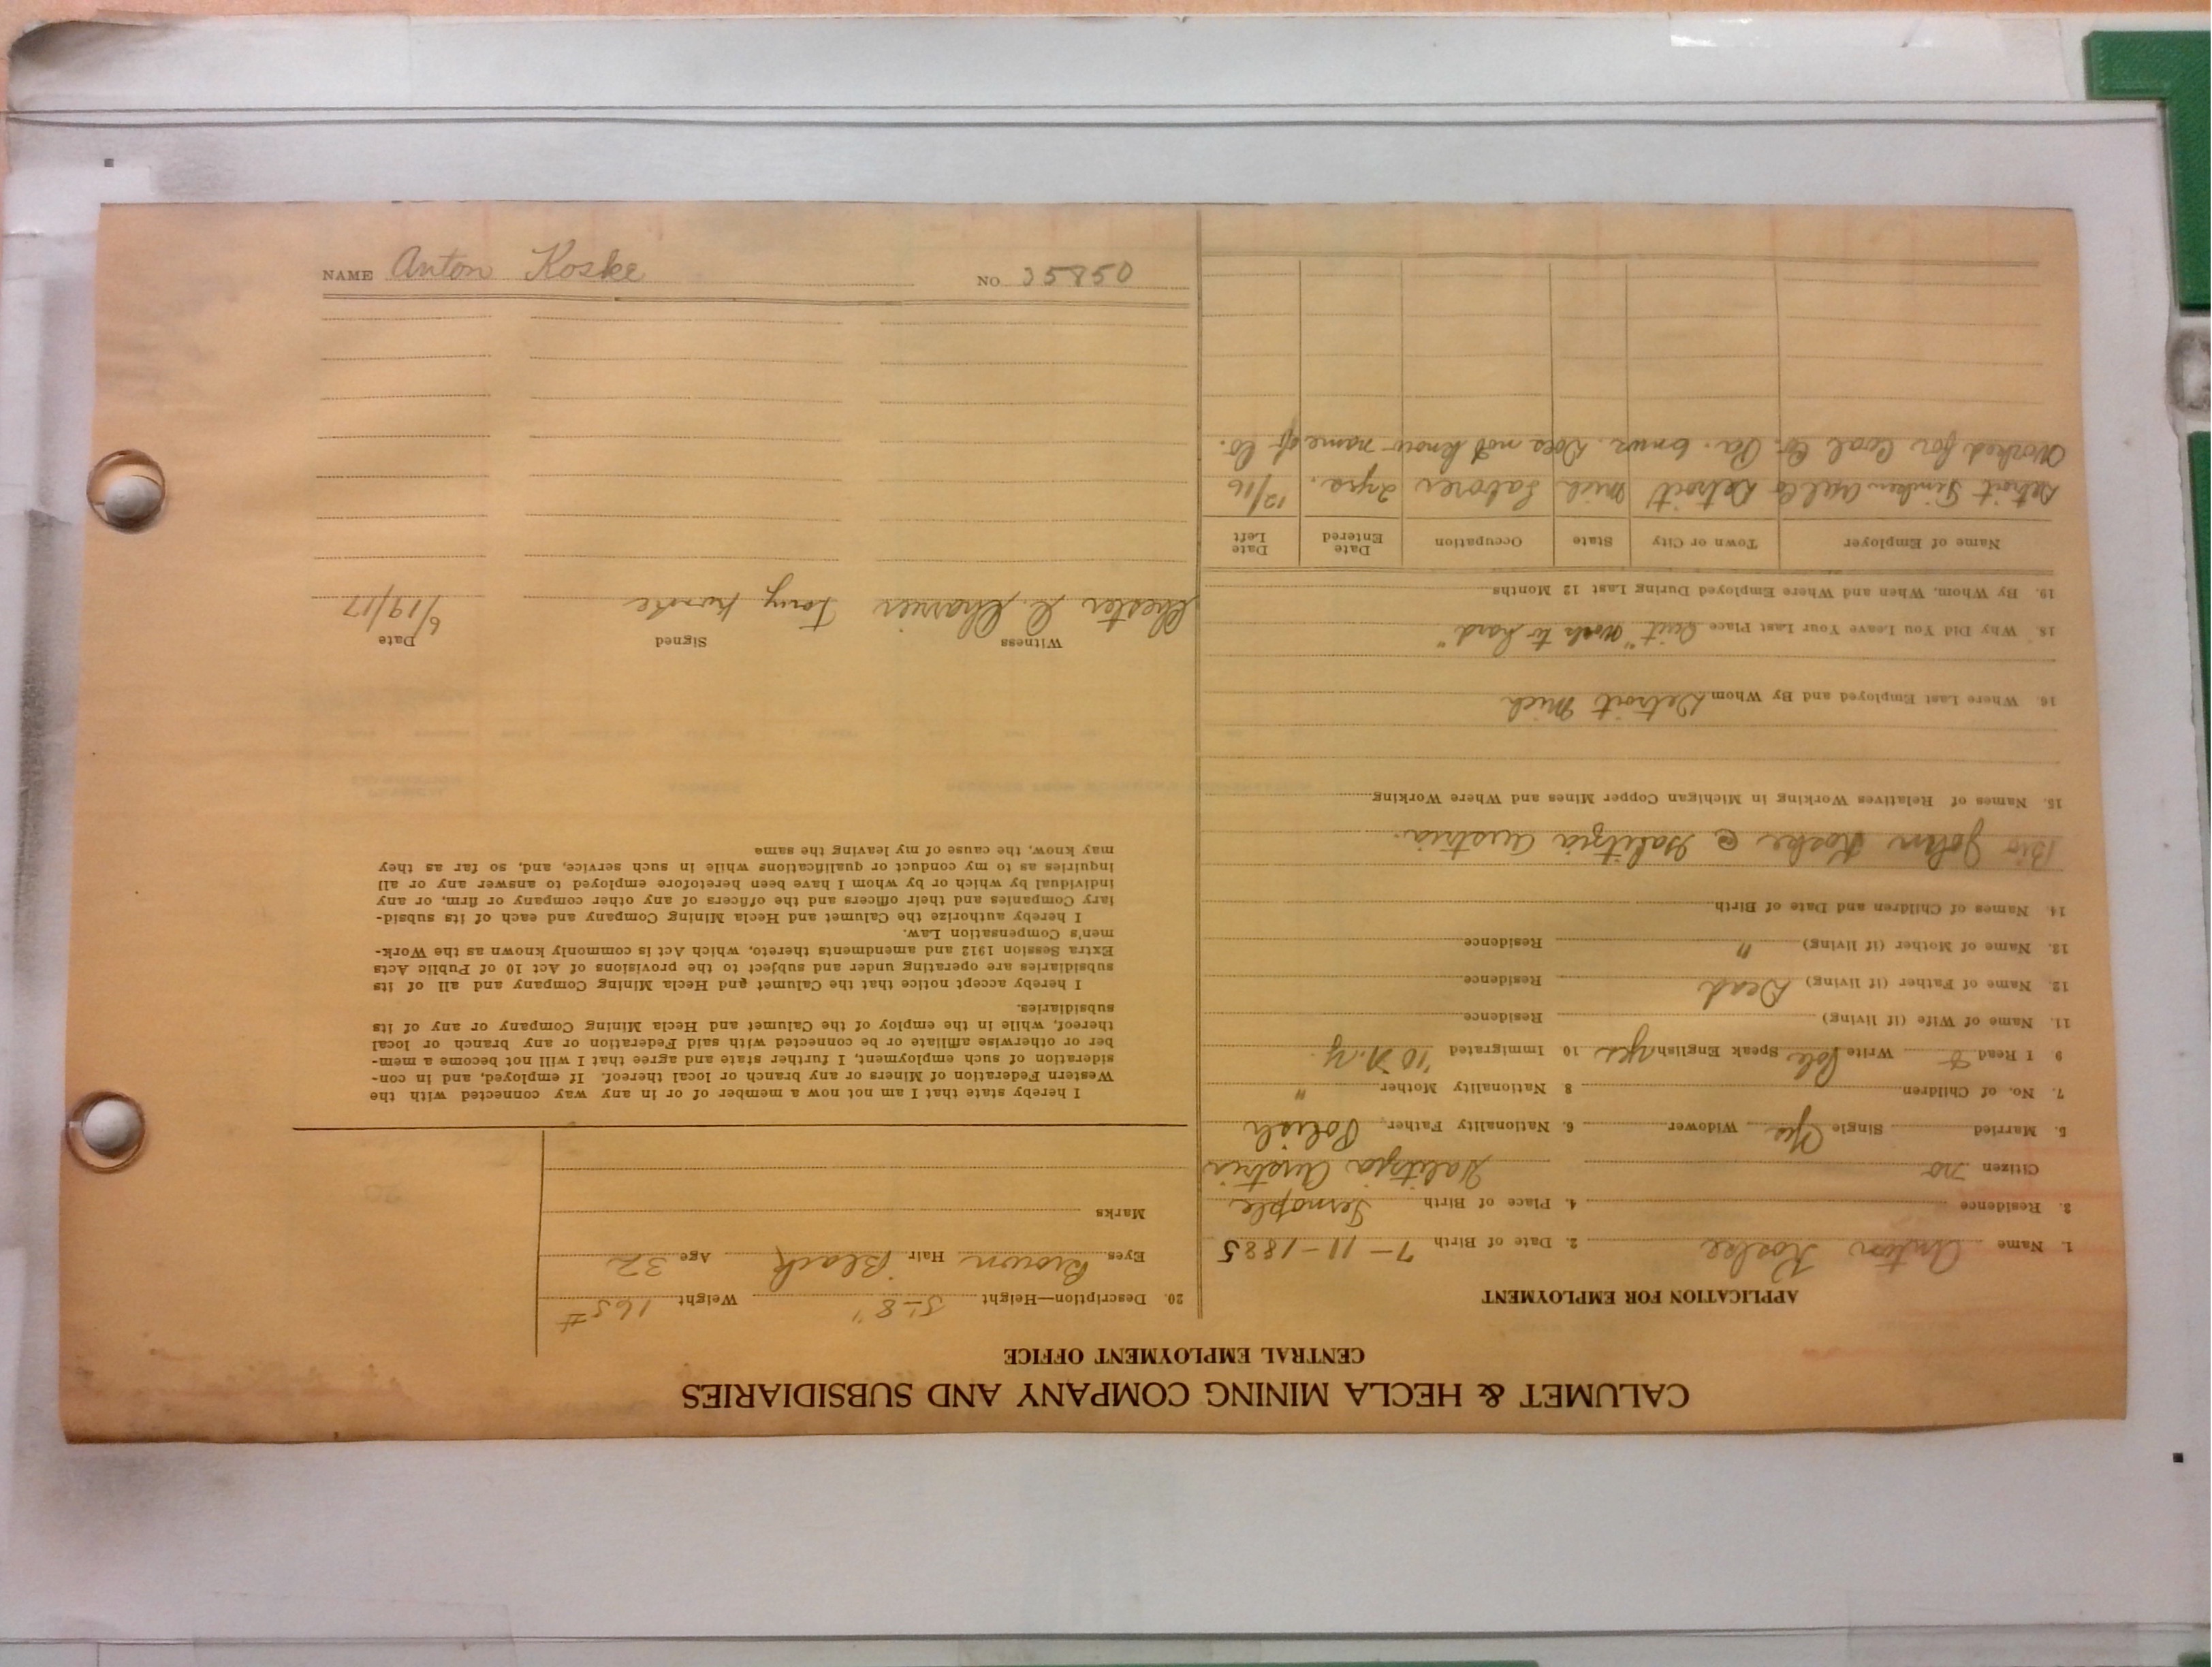 CALUMET & HECLA MINING COMPANY AND SUBSIDIARIES
CENTRAL EMPLOYMENT OFFICE
APPLICATION FOR EMPLOYMENT
1. Name Anton Koske 2. Date of Birth 7-11-1885
3. Residence 4. Place of Birth Ternople
Citizen no Galitzia Austria
5. Married Single Yes Widower 6. Nationality Father, Polish
7. No. of Children 8 Nationality Mother "
9 I Read & Write Pole Speak English yes 10 Immigrated '10 N.Y.
11. Name of Wife (if living) Residence
12. Name of Father (if living) Dead Residence
13. Name of Mother (if living) " Residence
14. Names of Children and Date of Birth
Bro John Koske @ Galitzia Austria.
15. Names of Relatives Working in Michigan Copper Mines and Where Working
16. Where Last Employed and By Whom Detroit Mich
18. Why Did You Leave Your Last Place Quit "Work to hard"
19. By Whom, When and Where Employed During Last 12 Months
Name of Employer Town or City State Occupation Date Entered Date Left
Detroit Timken Axel Co Detroit Mich Laborer 2 yrs. 12/16
Worked for Coal Co. Pa. 6 mos. Does not know name of Co.
20. Description—Height 5'-8" Weight 165#
Eyes Brown Hair Black Age 32
Marks
I hereby state that I am not now a member of or in any way connected with the
Western Federation of Miners or any branch or local thereof. If employed, and in con-
sideration of such employment, I further state and agree that I will not become a mem-
ber or otherwise affiliate or be connected with said Federation or any branch or local
thereof, while in the employ of the Calumet and Hecla Mining Company or any of its
subsidiaries.
I hereby accept notice that the Calumet and Hecla Mining Company and all of its
subsidiaries are operating under and subject to the provisions of Act 10 of Public Acts
Extra Session 1912 and amendments thereto, which Act is commonly known as the Work-
men's Compensation Law.
I hereby authorize the Calumet and Hecla Mining Company and each of its subsid-
iary Companies and their officers and the officers of any other company or firm, or any
individual by which or by whom I have been heretofore employed to answer any or all
inquiries as to my conduct or qualifications while in such service, and, so far as they
may know, the cause of my leaving the same
Witness Signed Date
Chester C. Tony 6/19/17
NAME Anton Koske NO 35850